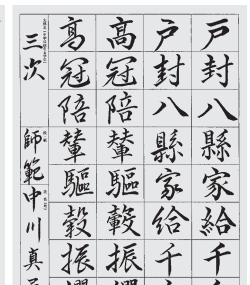 戸封八縣家給千
戸封八縣家給千
高冠陪輦驅轂振
高冠陪輦驅轂振
三次
師範 中川真